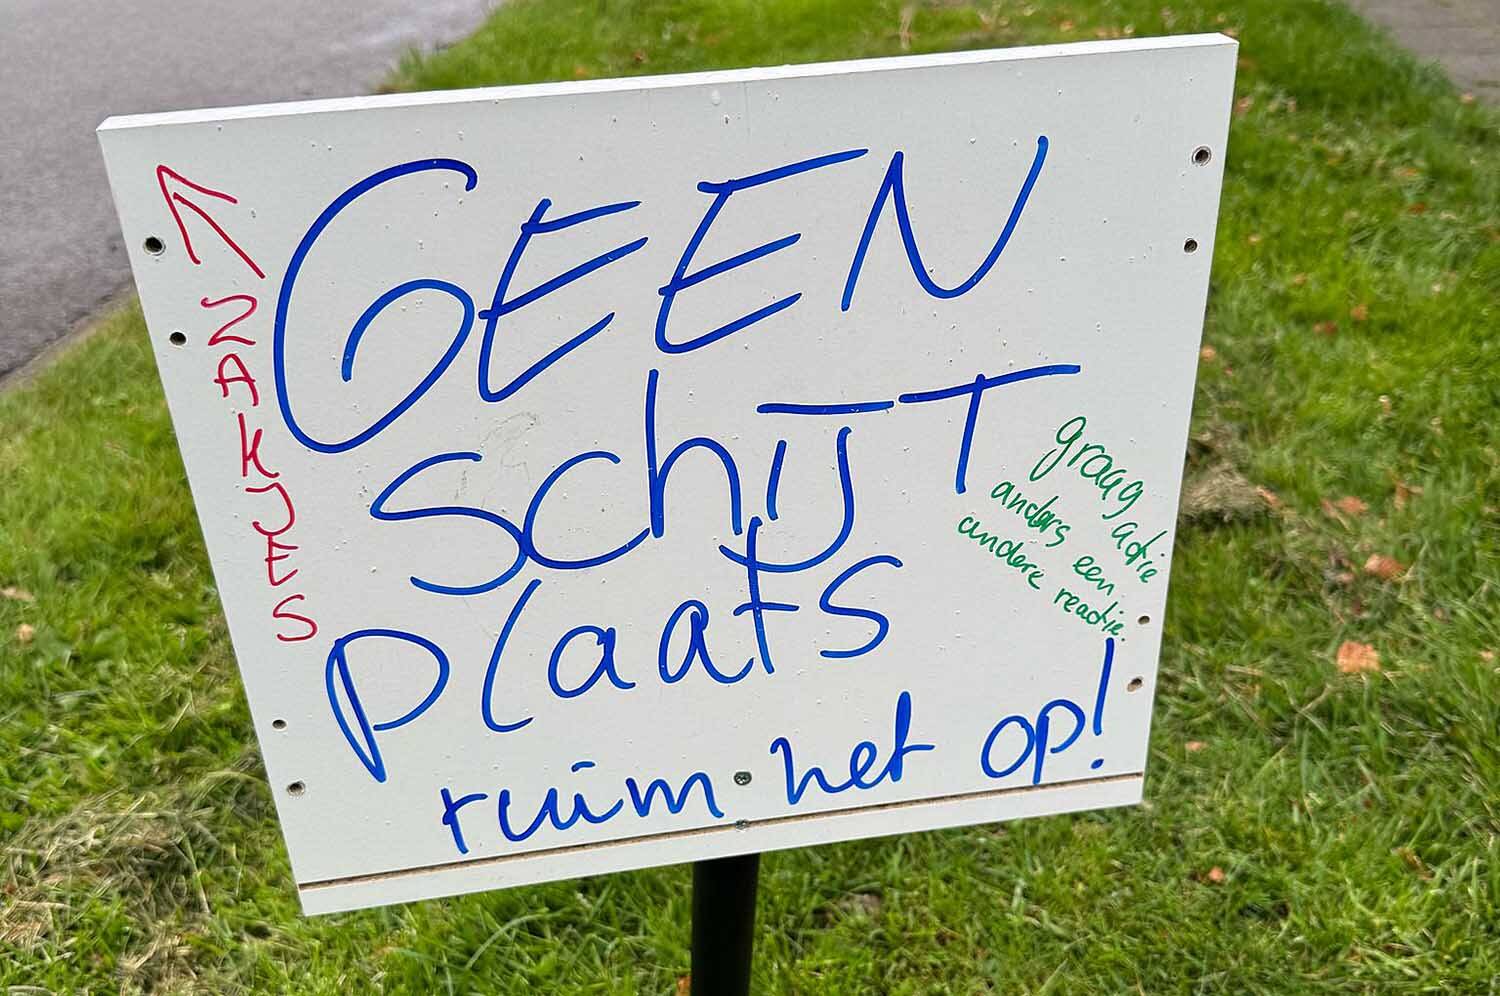 ZAKJES
GEEN
SchIJT
plaats
ruim het op!
graag actie
anders een
andere reactie.